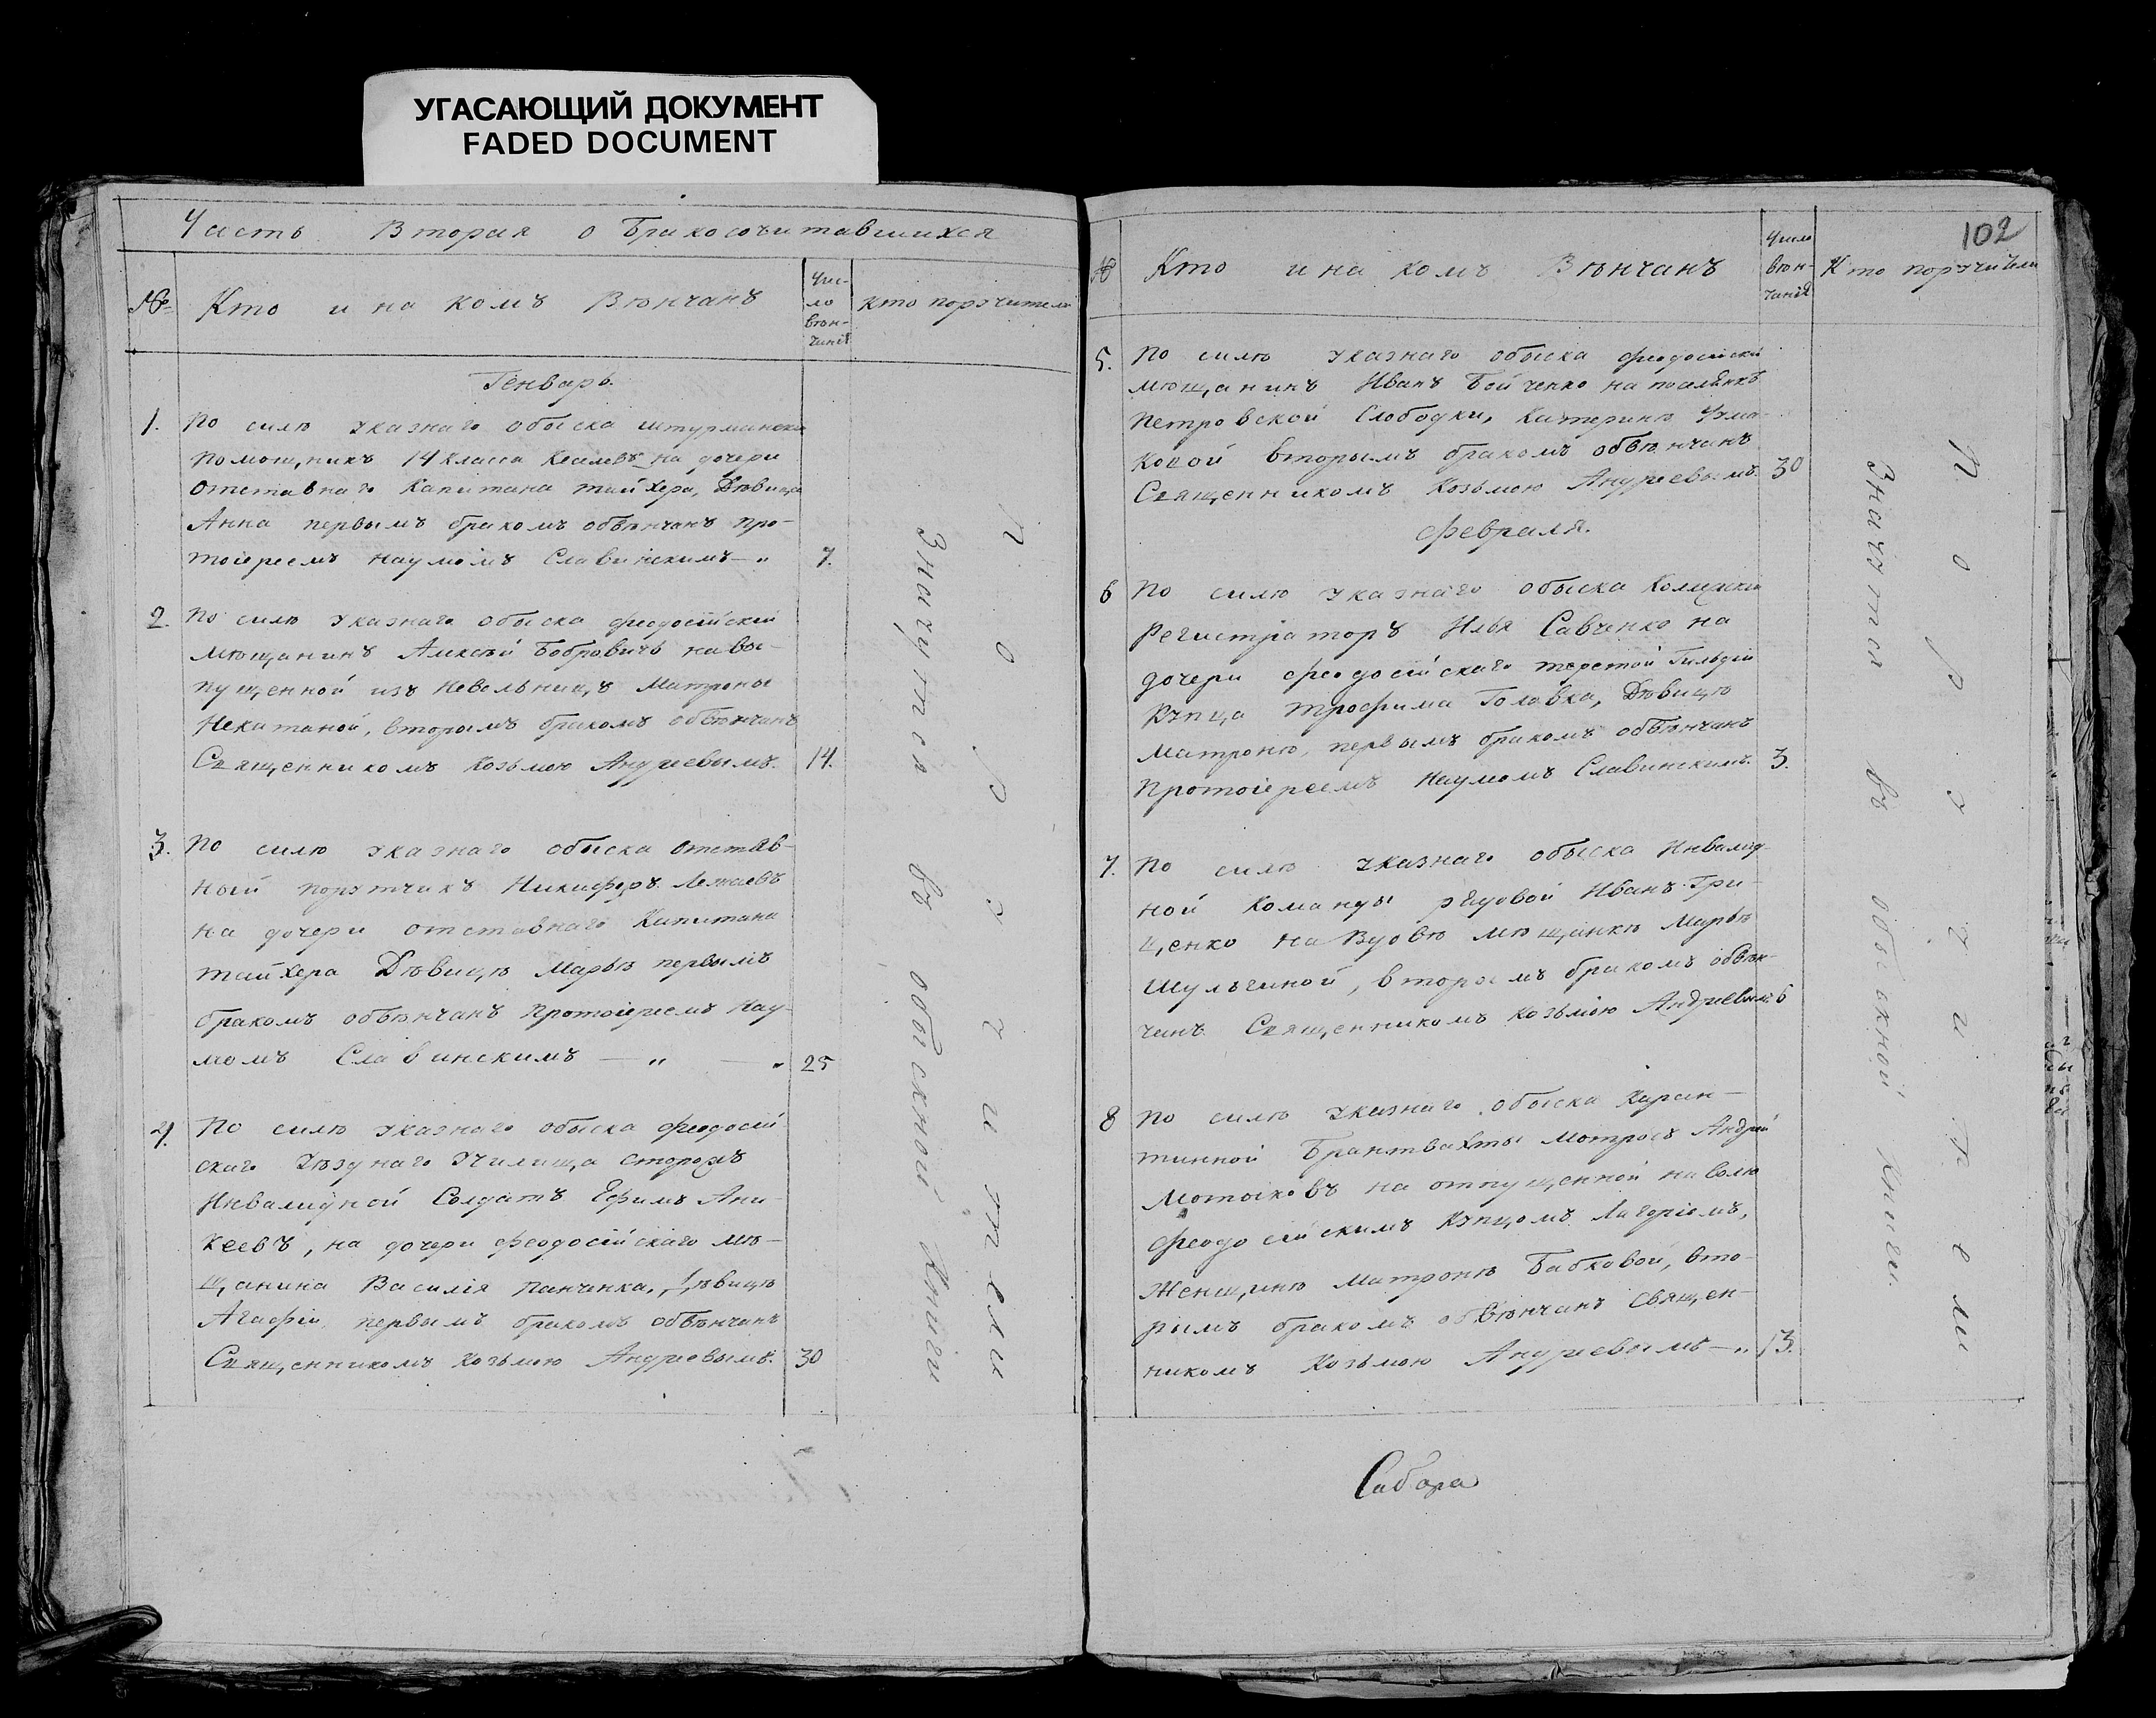 УГАСАЮЩИЙ ДОКУМЕНТ
FADED DOCUMENT
Часть Вторая о Бракосочитавшихся
№ Кто и на комъ Вѣнчанъ Чис-
ло
вѣн-
чанія
Кто поручители
Генварь.
1. По силѣ указнаго обыска штурманскій
Помощникъ 14 класса на дочери
Отставнаго Капитана Тайхера, Дѣвицѣ
Анна первымъ бракомъ обвѣнчанъ Про-
тоіереемъ Наумомъ Славинскимъ — „ 7.
2. По силѣ указнаго обыска феодосійскій
мѣщанинъ Алексѣй Бобровичь на вы-
пущенной изъ Невольницъ Матроны
Некитаной, вторымъ бракомъ обвѣнчанъ
Священникомъ Козьмою Андріевымъ. 14.
3. По силѣ указнаго обыска Отстав-
ный порутчикъ Никифоръ Лежаевъ
на дочери отставнаго Капитана
Тайхера Дѣвицѣ Марьѣ первымъ
бракомъ обвѣнчанъ Протоіереемъ Нау-
момъ Славинскимъ — „ — „ 25
4. По силѣ указнаго обыска феодосій
скаго Уѣзднаго Училища сторожъ
Инвалидной Солдатъ Ефимъ Ани-
кеевъ, на дочери феодосійскаго мѣ-
щанина Василія Панченка, Дѣвицѣ
Агафіи, первымъ бракомъ обвѣнчанъ
Священникомъ Козьмою Андріевымъ. 30
Поручители
Значутся въ обыскной Книги
102
№ Кто и на комъ Вѣнчанъ
Число
вѣн-
чанія
Кто поручители
5. По силѣ указнаго обыска феодосійскій
мѣщанинъ Иванъ Бойченко на поселянкѣ
Петровской Слободки, Катеринѣ
вторымъ бракомъ обвѣнчанъ
Священникомъ Козьмою Андріевымъ. 30
Февраля.
6 По силѣ указнаго обыска Колежскій
Регистраторъ Илья Савченко на
дочери феодосійскаго третой Гильдіи
Купца Трофима Головка, Дѣвицѣ
Матронѣ, первымъ бракомъ обвѣнчанъ
Протоіереемъ Наумомъ Славинскимъ. 3.
7. По силѣ указнаго обыска Инвалид-
ной Команды рядовой Иванъ Гри-
ценко на Вдовѣ мѣщанкѣ Марьѣ
Шульгиной, вторымъ бракомъ обвѣн-
чанъ Священникомъ Козьмою Андріевымъ 6
8 По силѣ указнаго обыска Каран-
тинной Брантвахты Матросъ Андрей
на отпущенной на волю
феодосійскимъ Купцомъ Лагоріомъ,
Женщинѣ Матронѣ Бабковой, вто-
рымъ бракомъ обвѣнчанъ Священ-
никомъ Козьмою Андріевымъ — „ 13.
Поручители
Значутся въ обыскной Книги.
Сабора